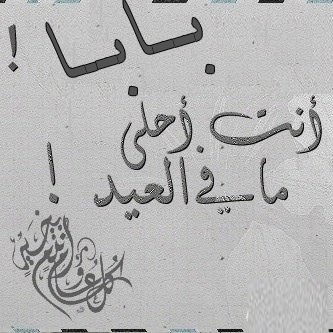 بابا !
أنت أحلى
ما في العيد !
كل عام وأنتم بخير